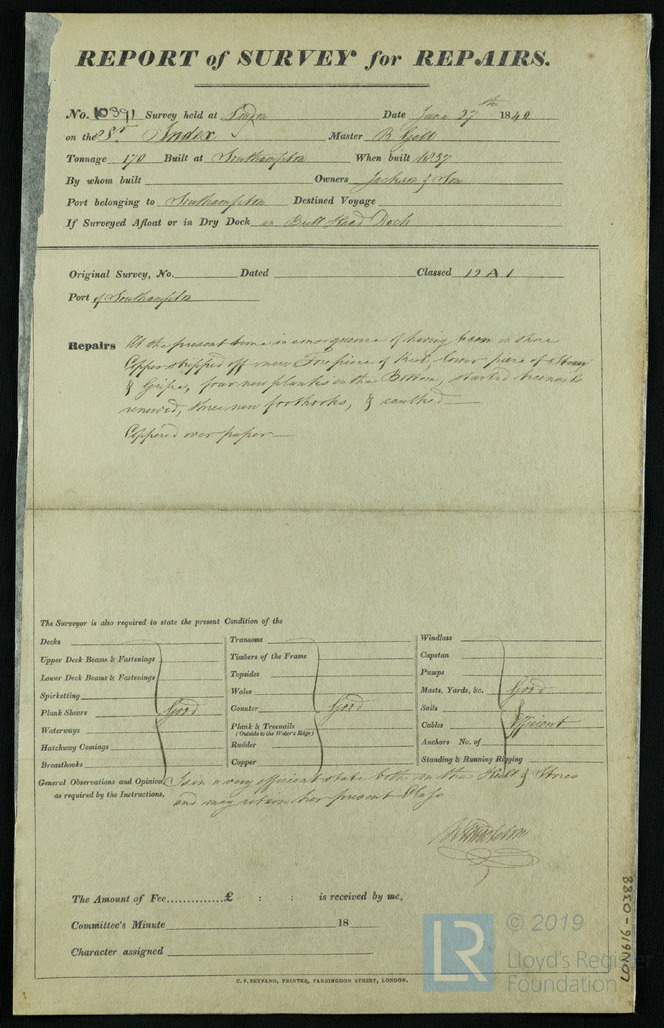 REPORT of SURVEY for REPAIRS.
No. 10391 Survey held at London Date June 27th 1840
on the Sr. Index Master B
Tonnage 170 Built at Southampton When built 1837
By whom built Owners Jackson & Son
Port belonging to Southampton Destined Voyage
If Surveyed Afloat or in Dry Dock in Bull Head Dock
Original Survey, No. Dated Classed 12 A 1
Port of Southampton
Repairs At the present time in consequence of having been on shore
Copper stripped off new Fore piece of Keel, lower piece of Stem
& Gripe, four new planks in the Bottom, started treenails
renewed, three new foothooks, & caulked
Coppered over paper
The Surveyor is also required to state the present Condition of the
Decks
Upper Deck Beams & Fastenings
Lower Deck Beams & Fastenings
Spirketting
Plank Sheers Good
Waterways
Hatchway Comings
Breasthooks
Transoms
Timbers of the Frame
Topsides
Wales
Counter Good
Plank & Treenails
(Outside to the Water's Edge)
Rudder
Copper
Windlass
Capstan
Pumps
Masts, Yards, &c. Good
Sails
Cables Efficient
Anchors No. of
Standing & Running Rigging
General Observations and Opinion, Is in a very efficient state both in the Hull & Stores
as required by the Instructions. and may retain her present Class
The Amount of Fee..............£ : : is received by me,
Committee's Minute 18
Character assigned
C. F. SEYFANG, PRINTER, FARRINGDON STREET, LONDON.
LON919-0388
LR
© 2019
Lloyd's Register
Foundation